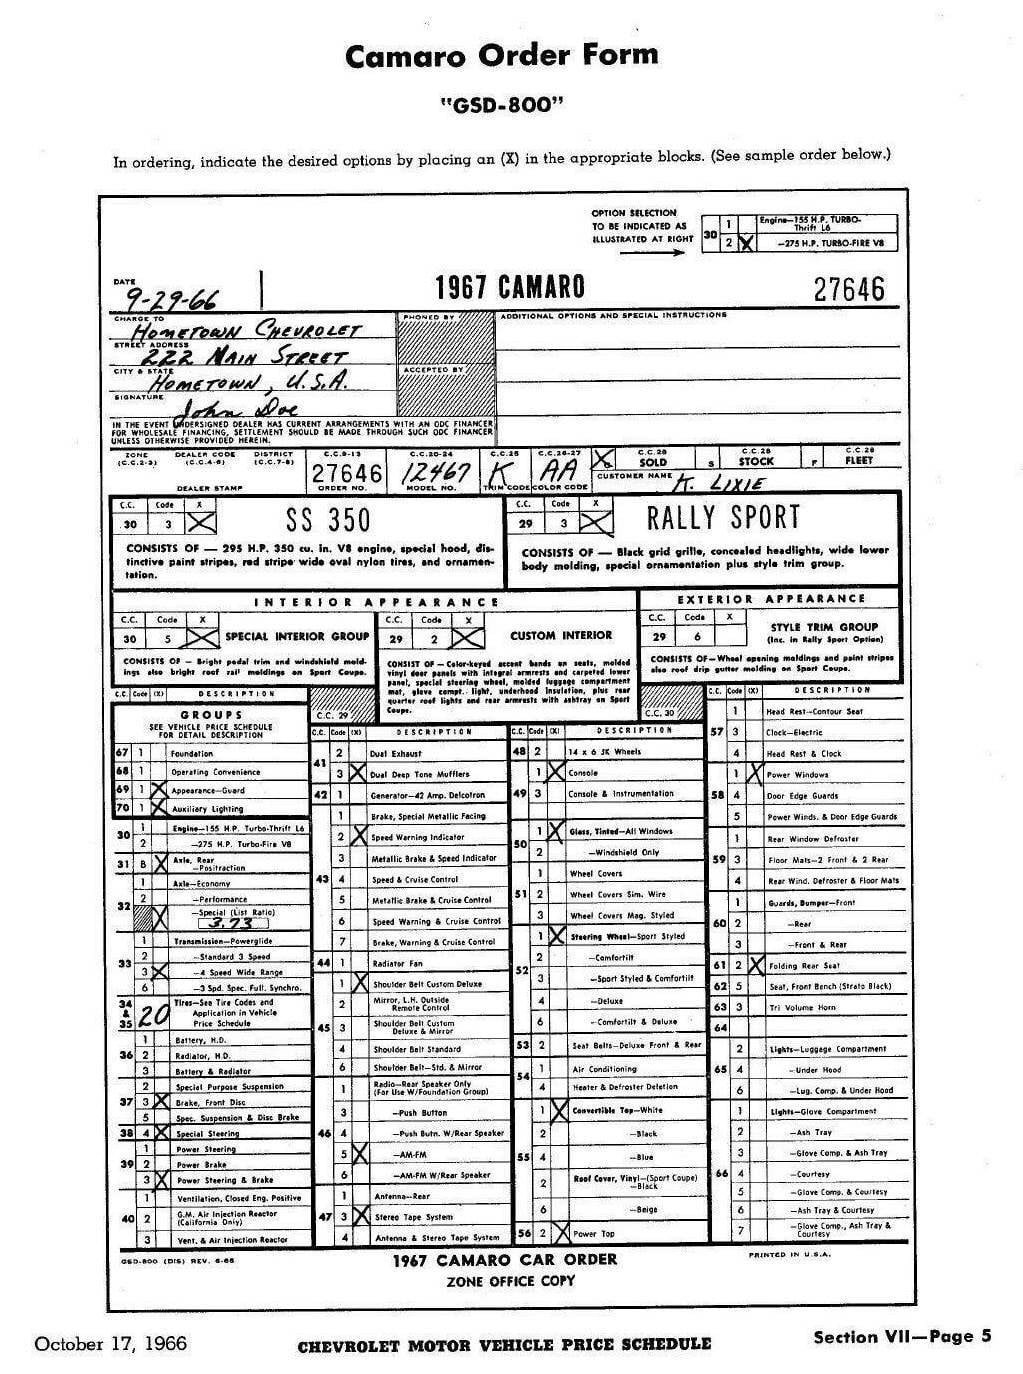 Camaro Order Form
"GSD-800"
In ordering, indicate the desired options by placing an (X) in the appropriate blocks. (See sample order below.)
OPTION SELECTION
TO BE INDICATED AS
ILLUSTRATED AT RIGHT
30 1 Engine—155 H.P. TURBO-Thrift L6
2 X —275 H.P. TURBO-FIRE V8
DATE
9-29-66
1967 CAMARO
27646
CHARGE TO
HOMETOWN CHEVROLET
STREET ADDRESS
222 MAIN STREET
CITY & STATE
HOMETOWN, U.S.A.
SIGNATURE
John Doe
PHONED BY
ACCEPTED BY
ADDITIONAL OPTIONS AND SPECIAL INSTRUCTIONS
IN THE EVENT UNDERSIGNED DEALER HAS CURRENT ARRANGEMENTS WITH AN ODC FINANCER
FOR WHOLESALE FINANCING, SETTLEMENT SHOULD BE MADE THROUGH SUCH ODC FINANCER
UNLESS OTHERWISE PROVIDED HEREIN.
ZONE (C.C.2-3) DEALER CODE (C.C.4-6) DISTRICT (C.C.7-8)
DEALER STAMP
C.C.9-13 27646 ORDER NO.
C.C.20-24 12467 MODEL NO.
C.C.25 K TRIM CODE
C.C.26-27 AA COLOR CODE
X C.C.28 SOLD
S C.C.28 STOCK
F C.C.28 FLEET
CUSTOMER NAME K. LIXIE
C.C. Code X
30 3 X SS 350
CONSISTS OF — 295 H.P. 350 cu. in. V8 engine, special hood, dis-
tinctive paint stripes, red stripe wide oval nylon tires, and ornamen-
tation.
C.C. Code X
29 3 X RALLY SPORT
CONSISTS OF — Black grid grille, concealed headlights, wide lower
body molding, special ornamentation plus style trim group.
INTERIOR APPEARANCE
C.C. Code X
30 5 X SPECIAL INTERIOR GROUP
CONSISTS OF - Bright pedal trim and windshield mold-
ings also bright roof rail moldings on Sport Coupe.
C.C. Code X
29 2 X CUSTOM INTERIOR
CONSIST OF - Color-keyed accent bands on seats, molded
vinyl door panels with integral armrests and carpeted lower
panel, special steering wheel, molded luggage compartment
mat, glove compt. light, underhood insulation, plus rear
quarter roof lights and rear armrests with ashtray on Sport
Coupe.
EXTERIOR APPEARANCE
C.C. Code X
29 6 STYLE TRIM GROUP
(Inc. in Rally Sport Option)
CONSISTS OF—Wheel opening moldings and paint stripes
also roof drip gutter molding on Sport Coupe.
C.C. Code (X) DESCRIPTION
GROUPS
SEE VEHICLE PRICE SCHEDULE
FOR DETAIL DESCRIPTION
67 1 Foundation
68 1 Operating Convenience
69 1 X Appearance—Guard
70 1 X Auxiliary Lighting
30 1 Engine—155 H.P. Turbo-Thrift L6
2 —275 H.P. Turbo-Fire V8
31 B X Axle, Rear
—Positraction
32 1 Axle—Economy
2 —Performance
X —Special (List Ratio)
3.73
33 1 Transmission—Powerglide
2 —Standard 3 Speed
3 X —4 Speed Wide Range
6 —3 Spd. Spec. Full. Synchro.
34 & 35 20 Tires—See Tire Codes and
Application in Vehicle
Price Schedule
36 1 Battery, H.D.
2 Radiator, H.D.
3 Battery & Radiator
37 2 Special Purpose Suspension
3 X Brake, Front Disc
5 Spec. Suspension & Disc Brake
38 4 X Special Steering
39 1 Power Steering
2 Power Brake
3 X Power Steering & Brake
40 1 Ventilation, Closed Eng. Positive
2 G.M. Air Injection Reactor
(California Only)
3 Vent. & Air Injection Reactor
C.C. 29
C.C. Code (X) DESCRIPTION
41 2 Dual Exhaust
3 X Dual Deep Tone Mufflers
42 1 Generator—42 Amp. Delcotron
43 1 Brake, Special Metallic Facing
2 X Speed Warning Indicator
3 Metallic Brake & Speed Indicator
4 Speed & Cruise Control
5 Metallic Brake & Cruise Control
6 Speed Warning & Cruise Control
7 Brake, Warning & Cruise Control
44 1 Radiator Fan
45 1 X Shoulder Belt Custom Deluxe
2 Mirror, L.H. Outside
Remote Control
3 Shoulder Belt Custom
Deluxe & Mirror
4 Shoulder Belt Standard
6 Shoulder Belt—Std. & Mirror
46 1 Radio—Rear Speaker Only
(For Use W/Foundation Group)
3 —Push Button
4 —Push Butn. W/Rear Speaker
5 X —AM-FM
6 —AM-FM W/Rear Speaker
47 1 Antenna—Rear
3 X Stereo Tape System
4 Antenna & Stereo Tape System
C.C. Code (X) DESCRIPTION
48 2 14 x 6 JK Wheels
49 1 X Console
3 Console & Instrumentation
50 1 X Glass, Tinted—All Windows
2 —Windshield Only
51 1 Wheel Covers
2 Wheel Covers Sim. Wire
3 Wheel Covers Mag. Styled
52 1 X Steering Wheel—Sport Styled
2 —Comfortilt
3 —Sport Styled & Comfortilt
4 —Deluxe
6 —Comfortilt & Deluxe
53 2 Seat Belts—Deluxe Front & Rear
54 1 Air Conditioning
4 Heater & Defroster Deletion
55 1 X Convertible Top—White
2 —Black
4 —Blue
2 Roof Cover, Vinyl—(Sport Coupe)
—Black
6 —Beige
56 2 X Power Top
C.C. 30
C.C. Code (X) DESCRIPTION
57 1 Head Rest—Contour Seat
3 Clock—Electric
4 Head Rest & Clock
58 1 X Power Windows
4 Door Edge Guards
5 Power Winds. & Door Edge Guards
59 1 Rear Window Defroster
3 Floor Mats—2 Front & 2 Rear
4 Rear Wind. Defroster & Floor Mats
60 1 Guards, Bumper—Front
2 —Rear
3 —Front & Rear
61 2 X Folding Rear Seat
62 5 Seat, Front Bench (Strato Black)
63 3 Tri Volume Horn
64
65 2 Lights—Luggage Compartment
4 —Under Hood
6 —Lug. Comp. & Under Hood
66 1 Lights—Glove Compartment
2 —Ash Tray
3 —Glove Comp. & Ash Tray
4 —Courtesy
5 —Glove Comp. & Courtesy
6 —Ash Tray & Courtesy
7 —Glove Comp., Ash Tray &
Courtesy
GSD-800 (DIS) REV. 6-66
1967 CAMARO CAR ORDER
ZONE OFFICE COPY
PRINTED IN U.S.A.
October 17, 1966
CHEVROLET MOTOR VEHICLE PRICE SCHEDULE
Section VII—Page 5